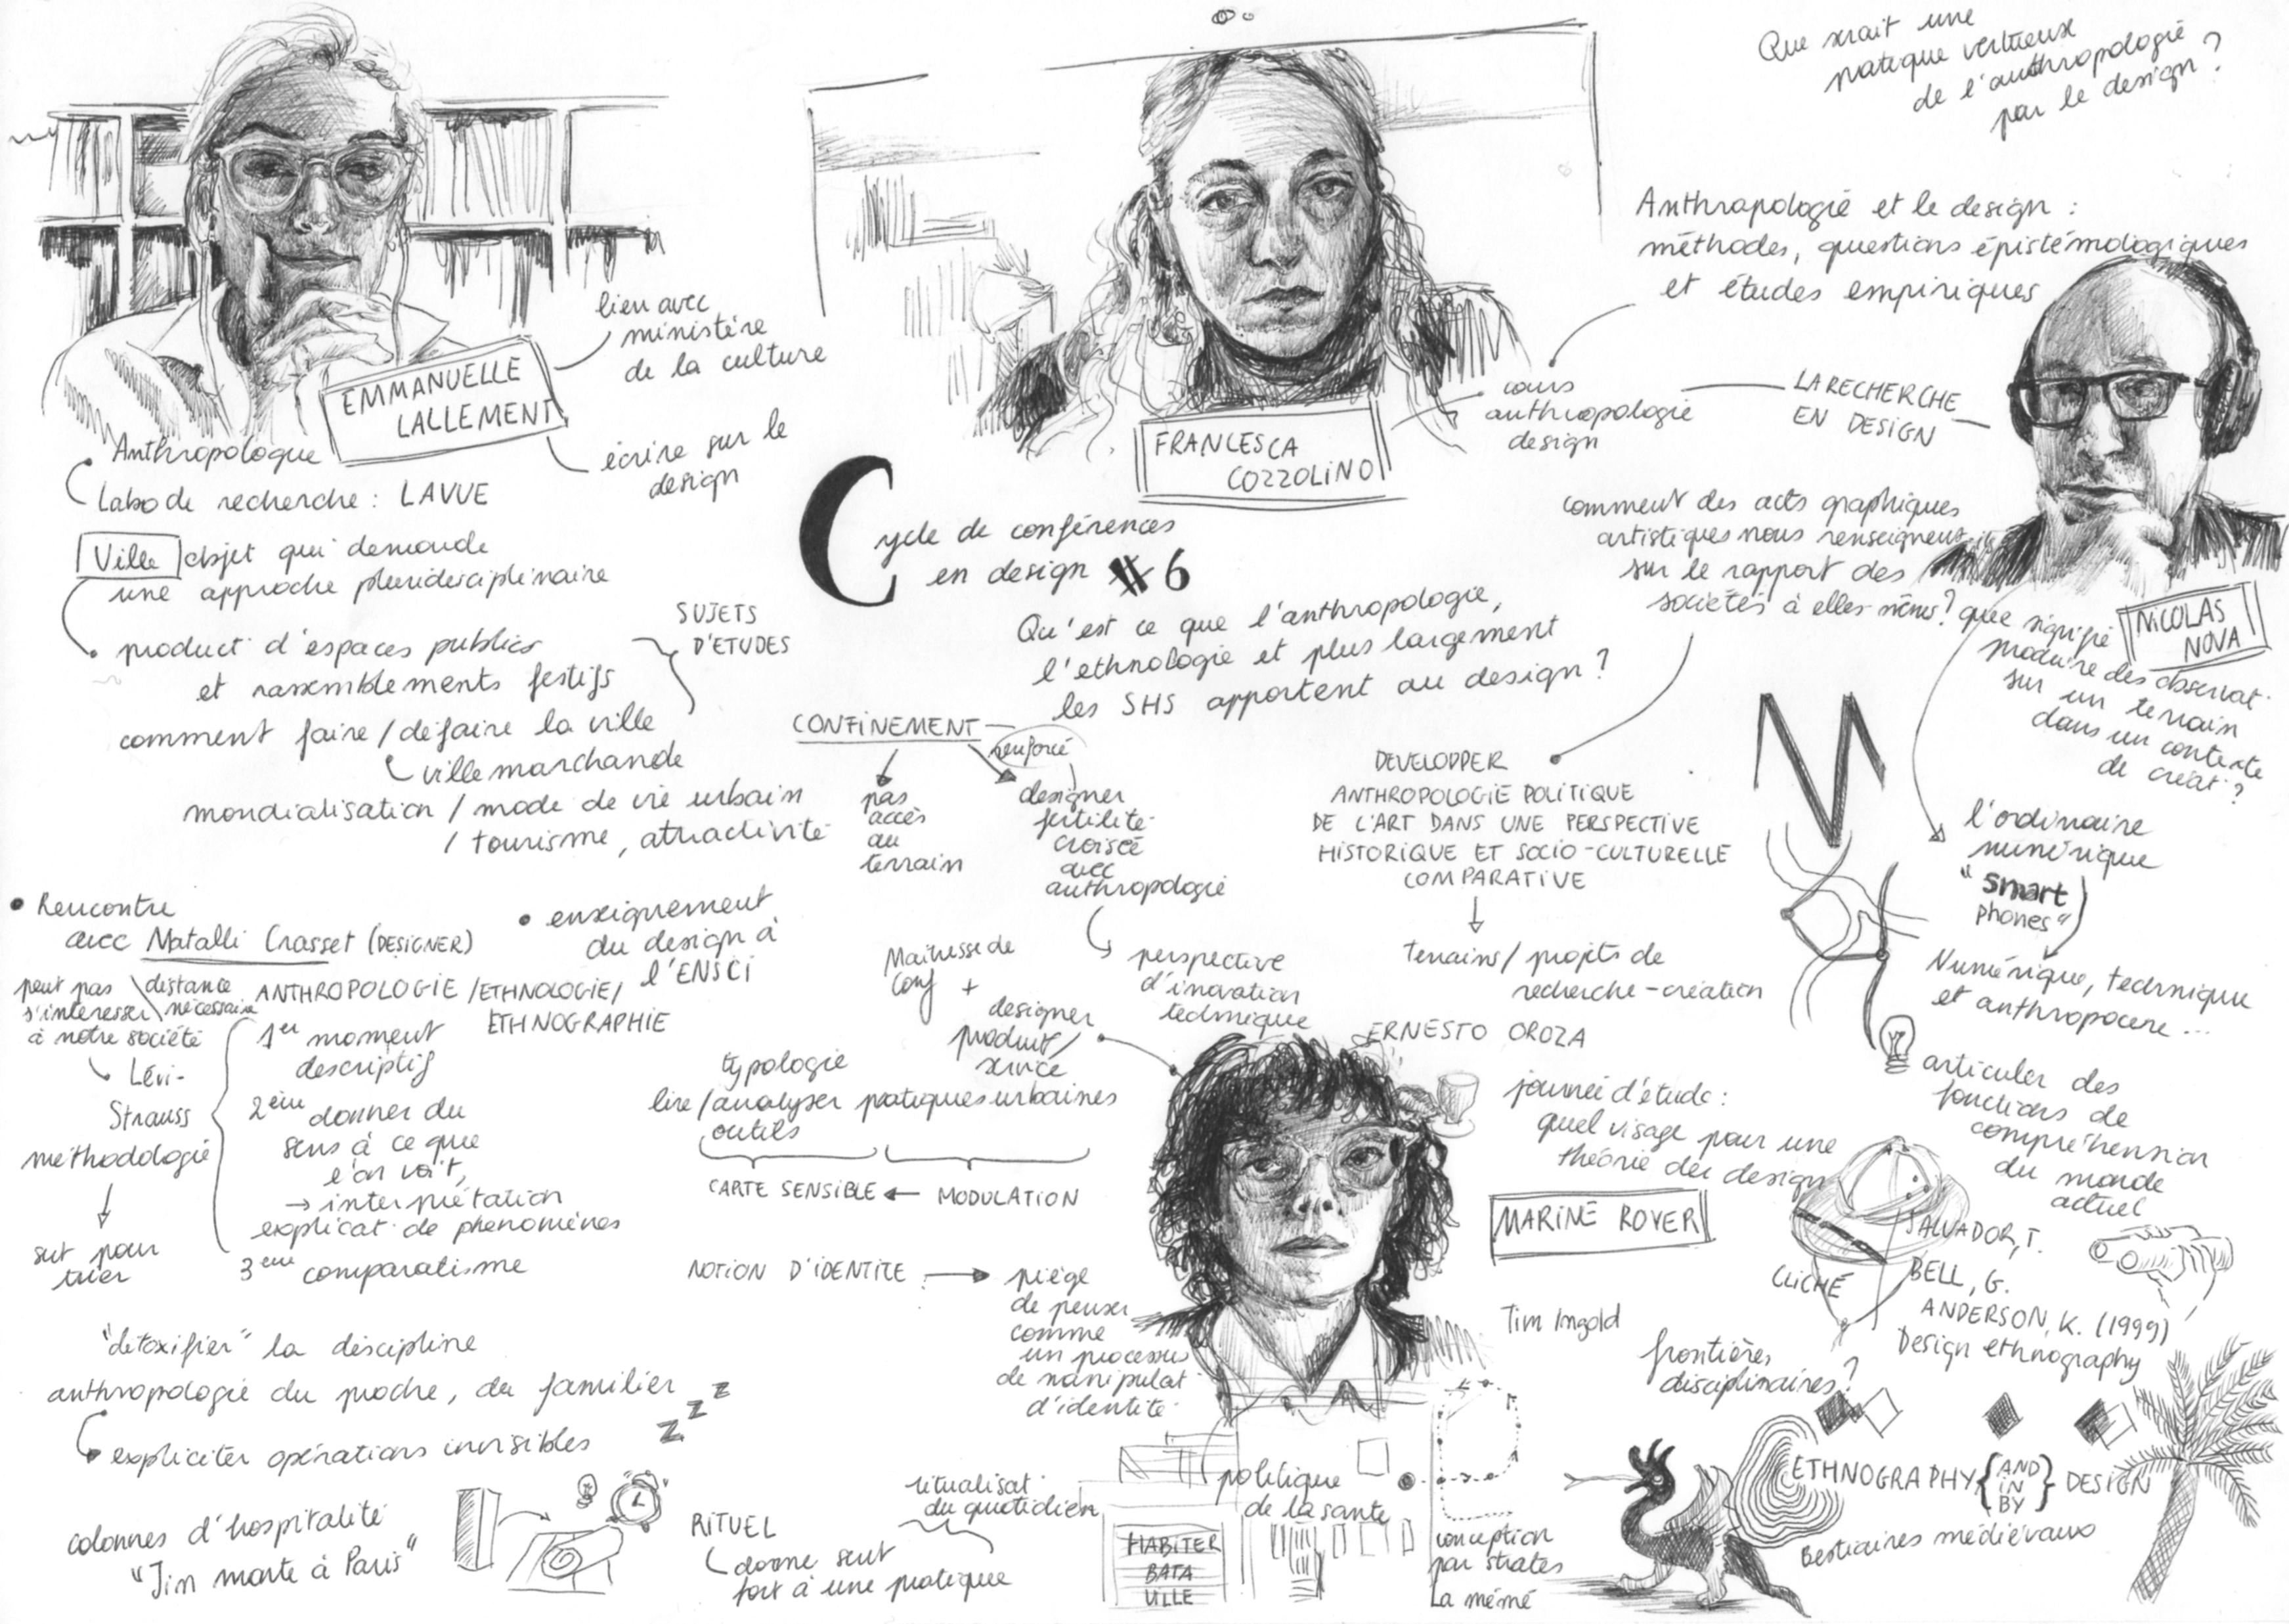 Que serait une
pratique vertueux
de l'anthropologie
par le design ?
EMMANUELLE
LALLEMENT
lien avec
ministère
de la culture
écrire sur le
design
Anthropologue
Labo de recherche : LAVUE
Ville objet qui demande
une approche pluridisciplinaire
product° d'espaces publics
et rassemblements festifs
comment faire / défaire la ville
ville marchande
mondialisation / mode de vie urbain
/ tourisme, attractivité
SUJETS
D'ETUDES
• Rencontre
avec Matalli Crasset (DESIGNER)
• enseignement
du design à
l'ENSCI
peut pas
s'intéresser
à notre société
distance
nécessaire
ANTHROPOLOGIE / ETHNOLOGIE /
ETHNOGRAPHIE
Lévi-
Strauss
méthodologie
sert pour
trier
1er moment
descriptif
2ème donner du
sens à ce que
l'on voit,
→ interprétation
explicat° de phénomènes
3ème comparatisme
"détoxifier" la discipline
anthropologie du proche, du familier
expliciter opérations invisibles
z z z
colonnes d'hospitalité
"Jim monte à Paris"
FRANCESCA
COZZOLINO
Cycle de conférences
en design #6
Qu'est ce que l'anthropologie,
l'ethnologie et plus largement
les SHS apportent au design ?
CONFINEMENT
renforcé
pas
accès
au
terrain
designer
fertilité
croisée
avec
anthropologie
perspective
d'inovation
technique
Anthropologie et le design :
méthodes, questions épistémologiques
et études empiriques
cours
anthropologie
design
LA RECHERCHE
EN DESIGN
comment des acts graphiques
artistiques nous renseignent-ils
sur le rapport des
sociétés à elles-mêmes ?
DEVELOPPER
ANTHROPOLOGIE POLITIQUE
DE L'ART DANS UNE PERSPECTIVE
HISTORIQUE ET SOCIO-CULTURELLE
COMPARATIVE
terrains / projets de
recherche-création
NICOLAS
NOVA
que signifie
produire des observat°
sur un terrain
dans un contexte
de créat° ?
l'ordinaire
numérique
"smart
phones"
Numérique, technique
et anthropocene ...
articuler des
fonctions de
compréhension
du monde
actuel
Maitresse de
Conf +
designer
produit /
service
typologie
lire / analyser pratiques urbaines
outils
CARTE SENSIBLE ← MODULATION
NOTION D'IDENTITE → piège
de penser
comme
un processus
de manipulat°
d'identité
ERNESTO OROZA
journée d'étude :
quel visage pour une
théorie du design
MARINE ROYER
Tim Ingold
CLICHÉ
SALVADOR, T.
BELL, G.
ANDERSON, K. (1999)
Design ethnography
frontières
disciplinaires ?
ETHNOGRAPHY { AND
IN
BY } DESIGN
Bestiaires médiévaux
RITUEL
donne sens
fort à une pratique
ritualisat°
du quotidien
politique
de la santé
HABITER
BATA
VILLE
conception
par strates
La mémé